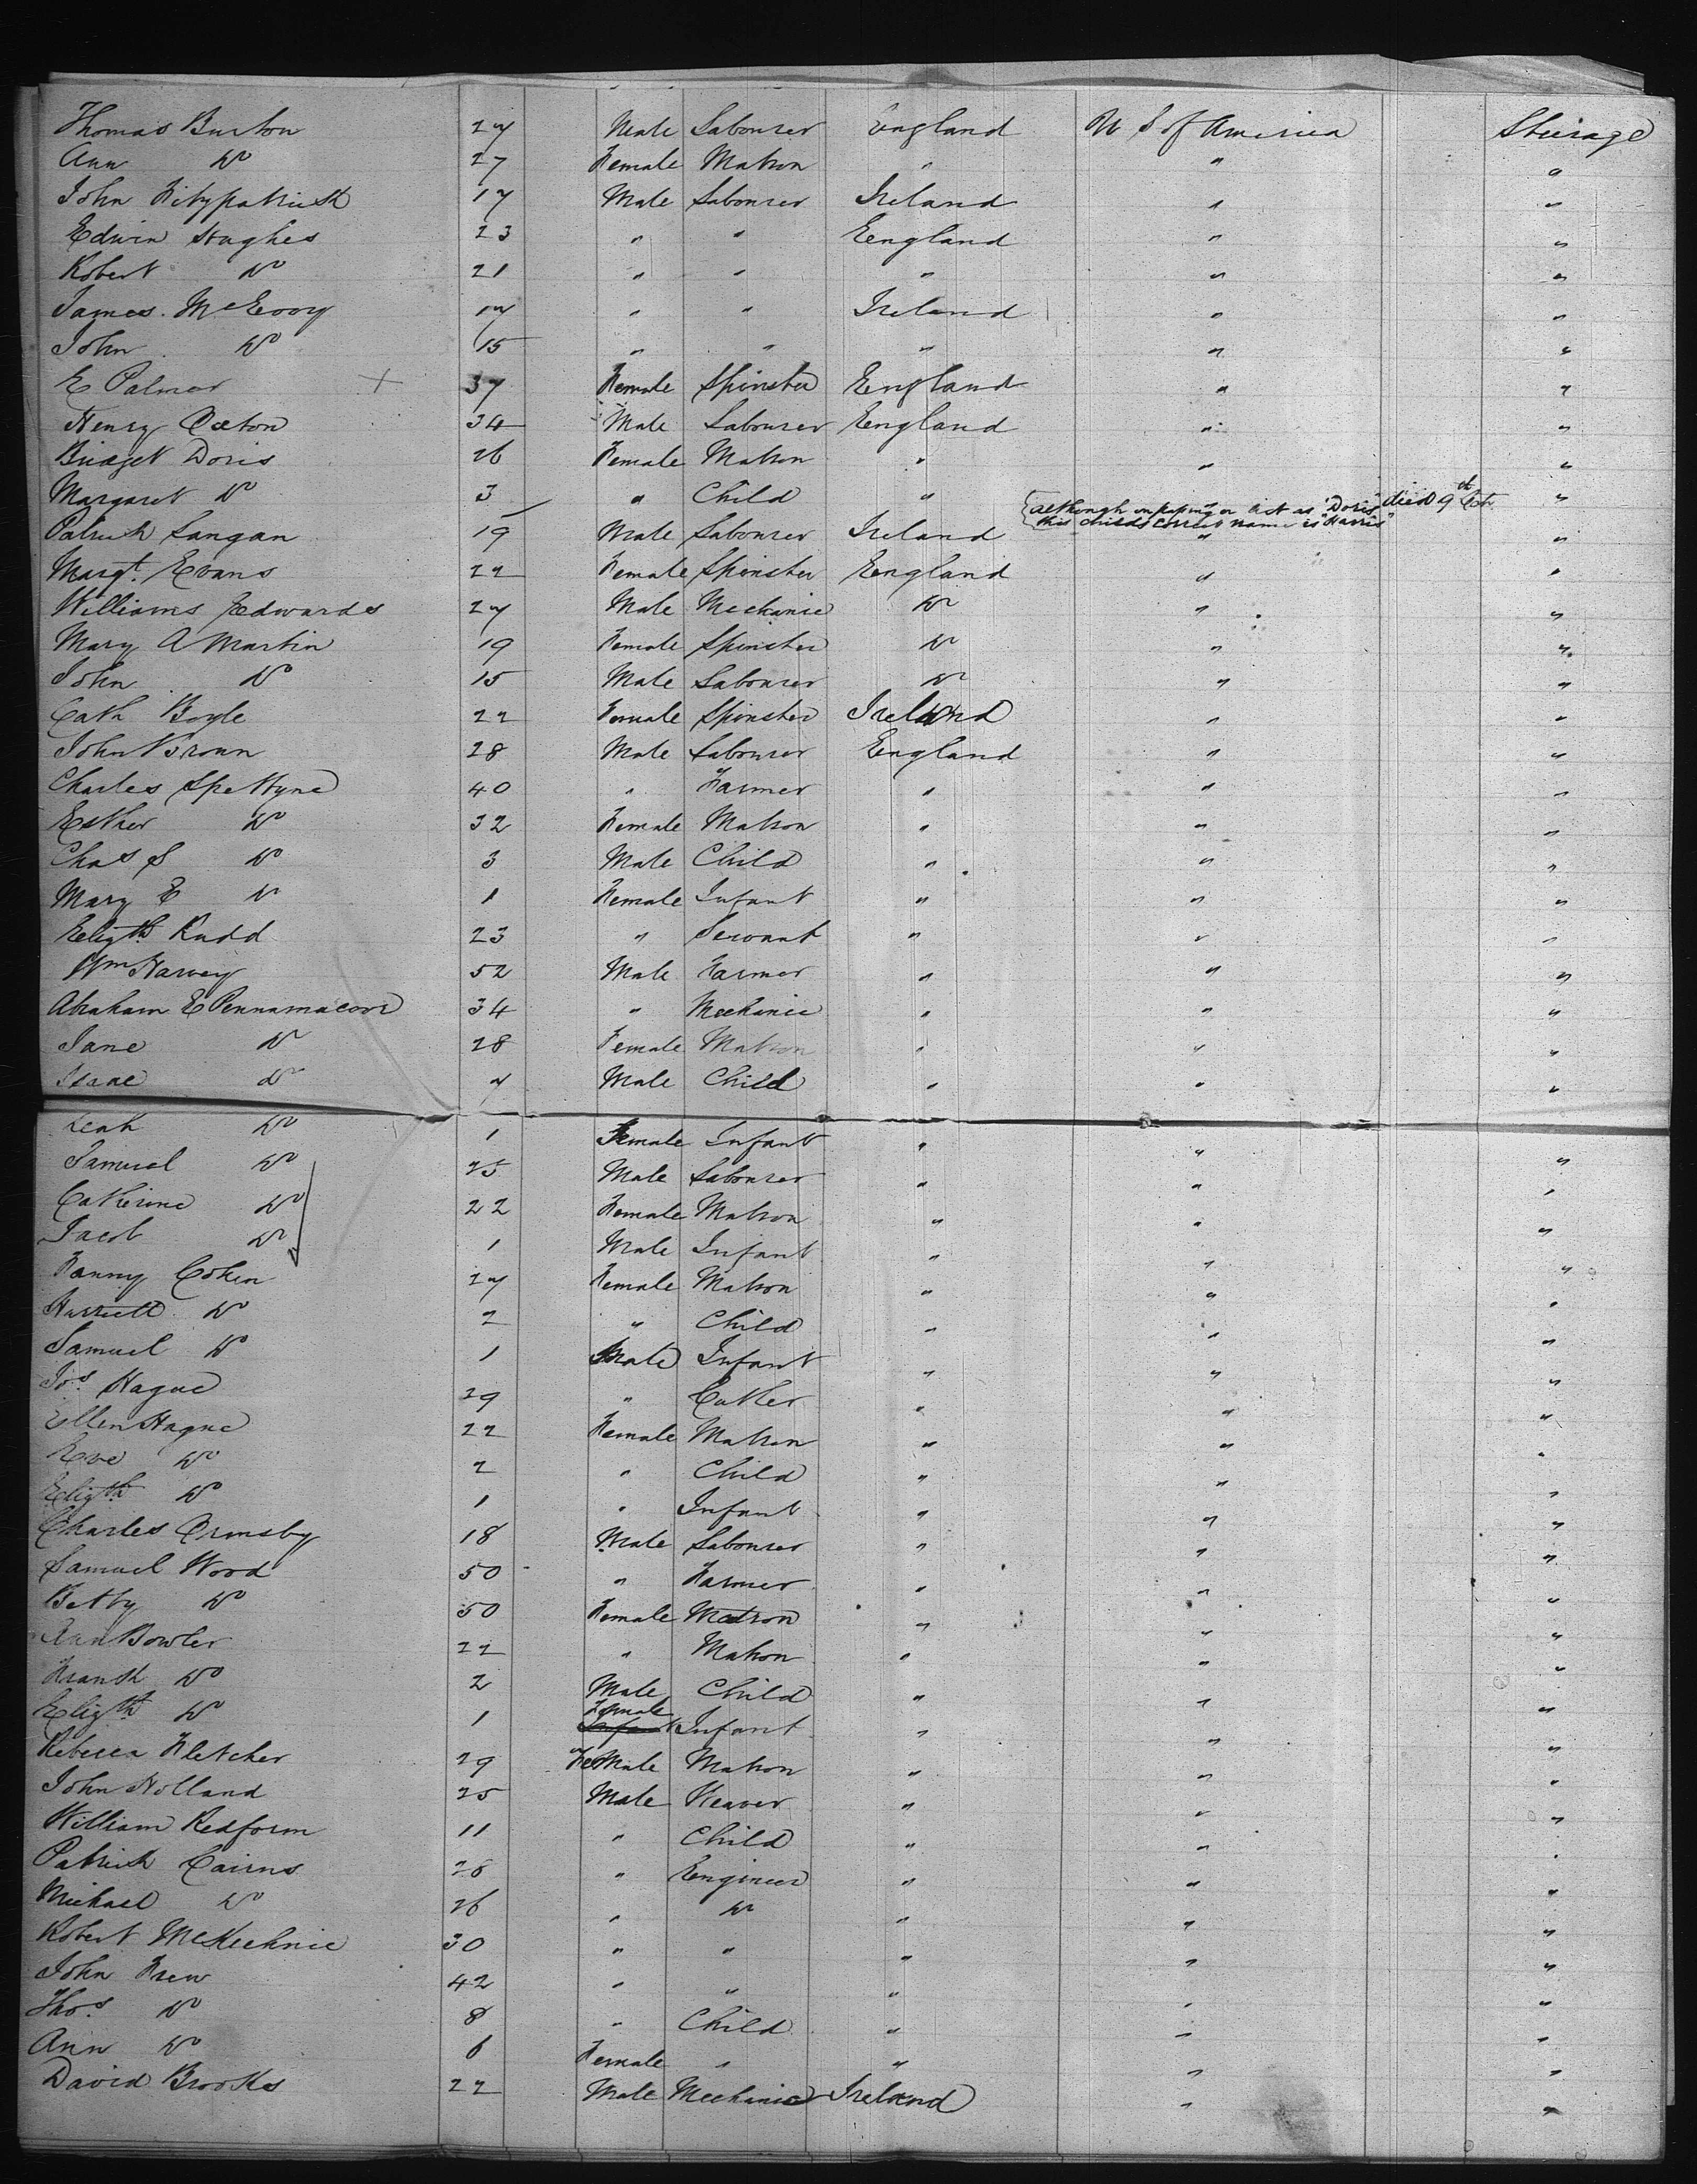 Thomas Burton 27 Male Labourer England U S of America Steerage
Ann Do 27 Female Matron " " "
John Fitzpatrick 17 Male Labourer Ireland " "
Edwin Hughes 23 " " England " "
Robert Do 21 " " " " "
James McEvoy 17 " " Ireland " "
John Do 15 " " " " "
E Palmer + 37 Female Spinster England " "
Henry Caxton 34 Male Labourer England " "
Bridget Doris 26 Female Matron " " "
Margaret Do 3 " Child " died 9th Oct. "
{although on passenger list as "Doris"
this childs correct name is "Harris"
Patrick Langan 19 Male Labourer Ireland " "
Margt. Evans 22 Female Spinster England " "
Williams Edwards 27 Male Mechanic Do " "
Mary A Martin 19 Female Spinster Do " "
John Do 15 Male Labourer Do " "
Cath Boyle 22 Female Spinster Ireland " "
John Brown 28 Male Labourer England " "
Charles Spettyne 40 " Farmer " " "
Esther Do 32 Female Matron " " "
Chas S Do 3 Male Child " " "
Mary E Do 1 Female Infant " " "
Elizth Rudd 23 " Servant " " "
Wm Harvey 52 Male Farmer " " "
Abraham E Pennamacoor 34 " Mechanic " " "
Jane Do 28 Female Matron " " "
Isaac Do 7 Male Child " " "
Leah Do 1 Female Infant " " "
Samuel Do 25 Male Labourer " " "
Catherine Do 22 Female Matron " " "
Jacob Do 1 Male Infant " " "
Fanny Cohen 27 Female Matron " " "
Harriett Do 2 " Child " " "
Samuel Do 1 Male Infant " " "
Jos. Hague 29 " Cutler " " "
Ellen Hague 22 Female Matron " " "
Eve Do 2 " Child " " "
Elizth Do 1 " Infant " " "
Charles Ormsby 18 Male Labourer " " "
Samuel Wood 50 " Farmer " " "
Betty Do 50 Female Matron " " "
Ann Bowler 22 " Matron " " "
Frank Do 2 Male Child " " "
Elizth Do 1 Female Infant Infant " " "
Rebecca Fletcher 29 FeMale Matron " " "
John Holland 25 Male Weaver " " "
William Redform 11 " Child " " "
Patrick Cairns 28 " Engineer " " "
Michael Do 26 " Do " " "
Robert McKechnie 30 " " " " "
John Frew 42 " " " " "
Thos. Do 8 " Child " " "
Ann Do 6 Female " " " "
David Brookes 22 Male Mechanic Ireland " "